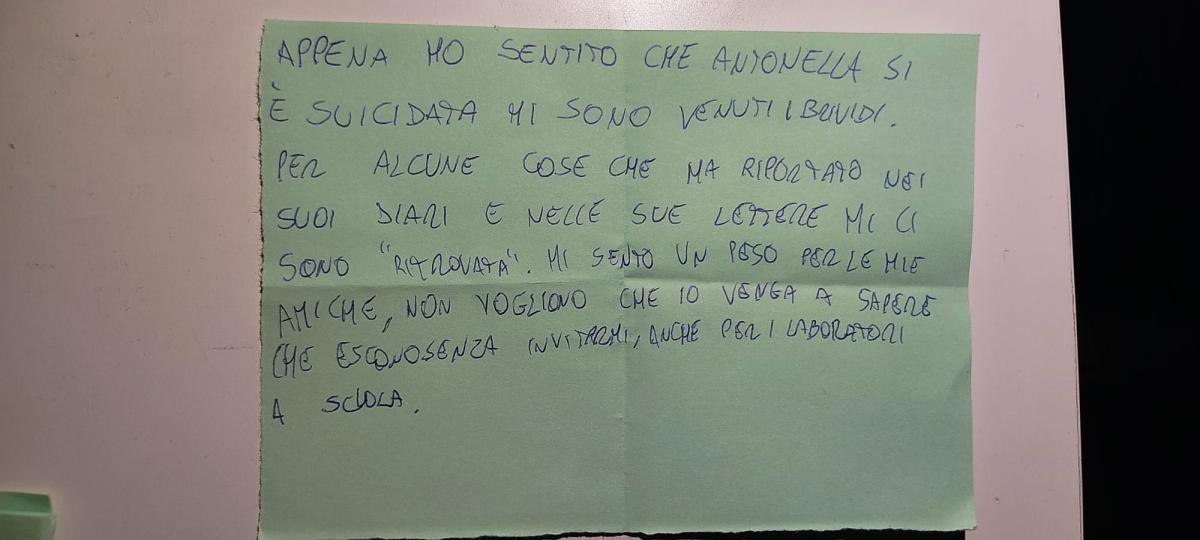 APPENA HO SENTITO CHE ANTONELLA SI
È SUICIDATA MI SONO VENUTI I BRIVIDI.
PER ALCUNE COSE CHE HA RIPORTATO NEI
SUOI DIARI E NELLE SUE LETTERE MI CI
SONO "RITROVATA". MI SENTO UN PESO PER LE MIE
AMICHE, NON VOGLIONO CHE IO VENGA A SAPERE
CHE ESCONO SENZA INVITARMI, ANCHE PER I LABORATORI
A SCUOLA.